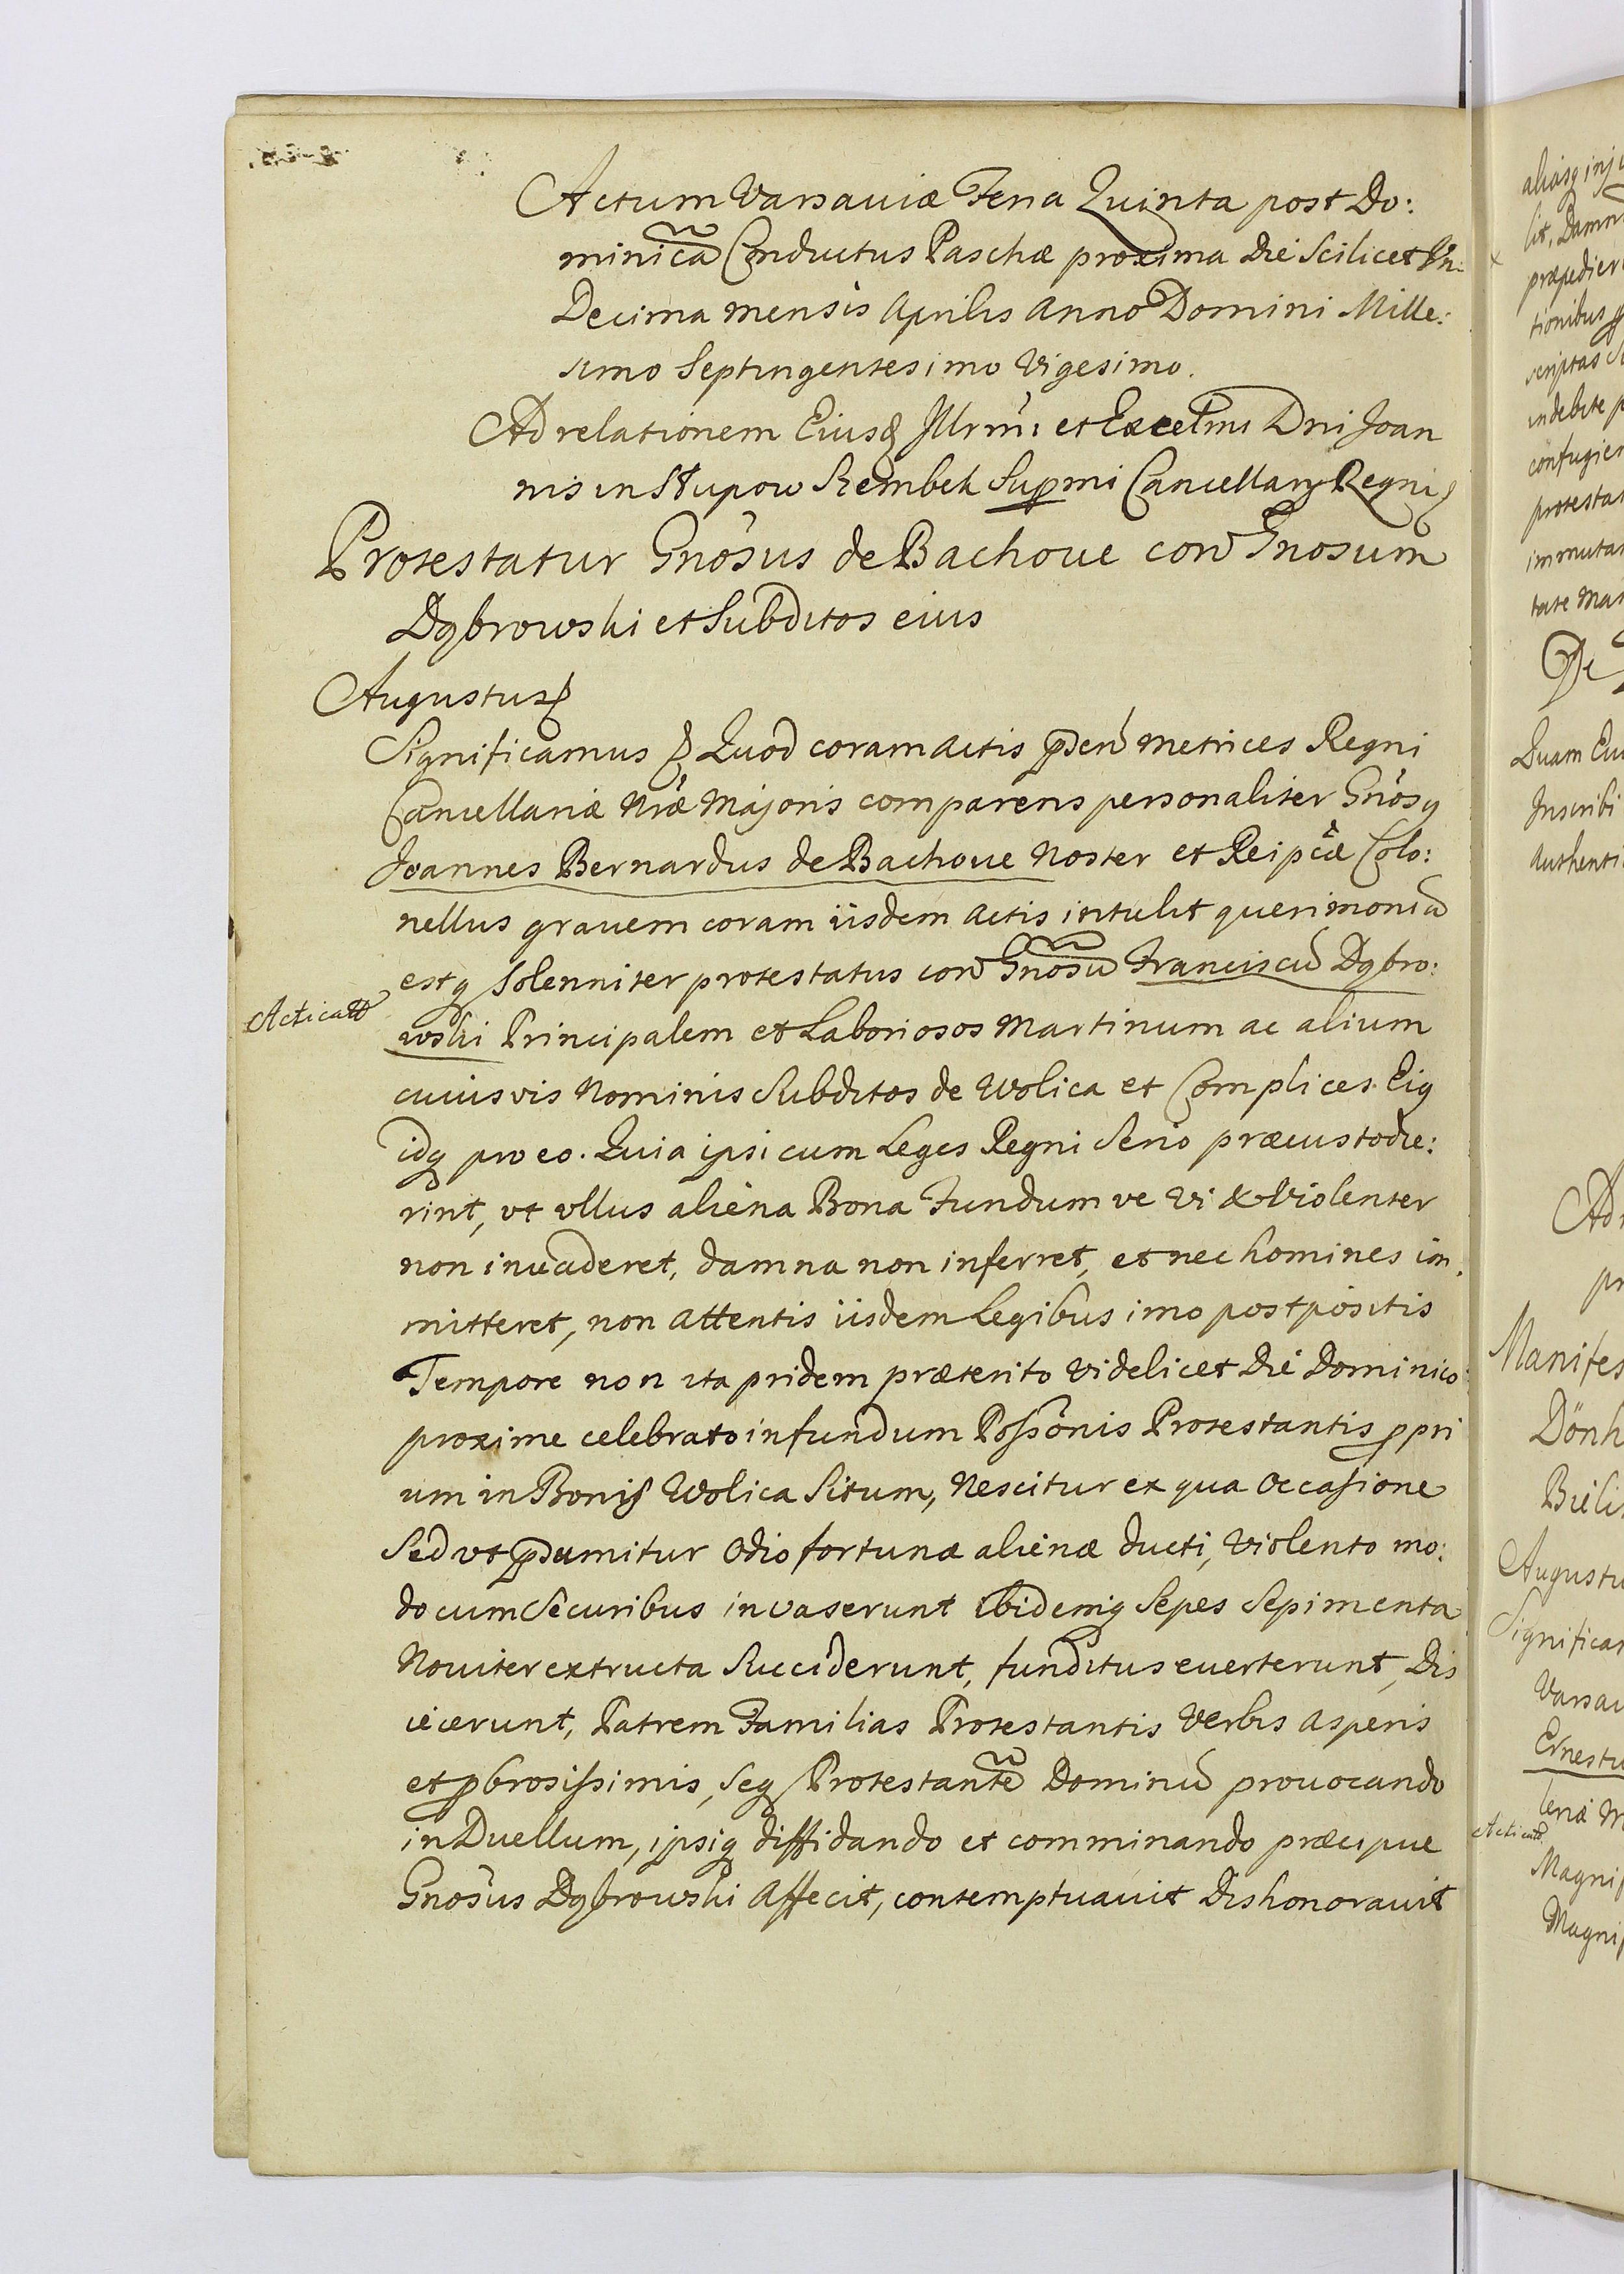 Actum Varsaviæ Feria Quinta post Do:
minicã Conductus Paschæ proxima Die Scilicet Vn:
Decima mensis Aprilis Anno Domini Mille:
simo Septingentesimo Vigesimo.
Ad relationem Eiusd Illrmi: et Excelmi Dni Joan
nis in Słupow Szembek Supmi Cancellarij Regni
Protestatur Gnosus de Bachoue con Gnosum
Dąbrowski et Subditos eius
Augustus
Significamus Quod coram Actis psen Metrices Regni
Cancellariæ Nræ Majoris comparens personaliter Gnosq
Joannes Bernardus de Bachoue Noster et Reipcæ Colo:
nellus grauem coram iisdem Actis intulit querimoniã
estq solenniter protestatus con Gnosũ Franciscũ Dąbro:
Acticatũ
wski Principalem et Laboriosos Martinum ac alium
cuiusvis Nominis Subditos de Wolica et Complices Eiq
idq pro eo. Quia ipsi cum Leges Regni Serio præcustodie:
rint, vt vllus aliena Bona Fundum ve Vi & Violenter
non inuaderet, damna non inferret, et nec homines im.
mitteret, non attentis iisdem Legibus imo postpositis
Tempore non ita pridem præterito videlicet Die Dominico
proxime celebrato in fundum Possonis Protestantis ppri
um in Bonis Wolica Situm, Nescitur ex qua Occasione
Sed vt psumitur Odio fortunæ alienæ ducti, Violento mo:
do cum Securibus invaserunt ibidemq Sepes Sepimenta
Nouiter extructa Succiderunt, funditus euerterunt, Dis
iecerunt, Patrem Familias Protestantis Verbis Asperis
et pbrosissimis, seq Protestantẽ Dominũ prouocando
in Duellum, ipsiq diffidando et comminando præcipue
Gnosus Dąbrowski Affecit, contemptuauit Dishonorauit
aliasq inj
lit, Damn
præpedier
tionibus
scriptas
indebite p
confugier
protestat
immutan
tate Ma
Quam Eu
Inscribi
Authenti
Ad
pr
Manifes
Dönh
Bieli
Augustu
Significa
Varsau
Ernestu
leriæ M
Acticatũ
Magnif
Magnif